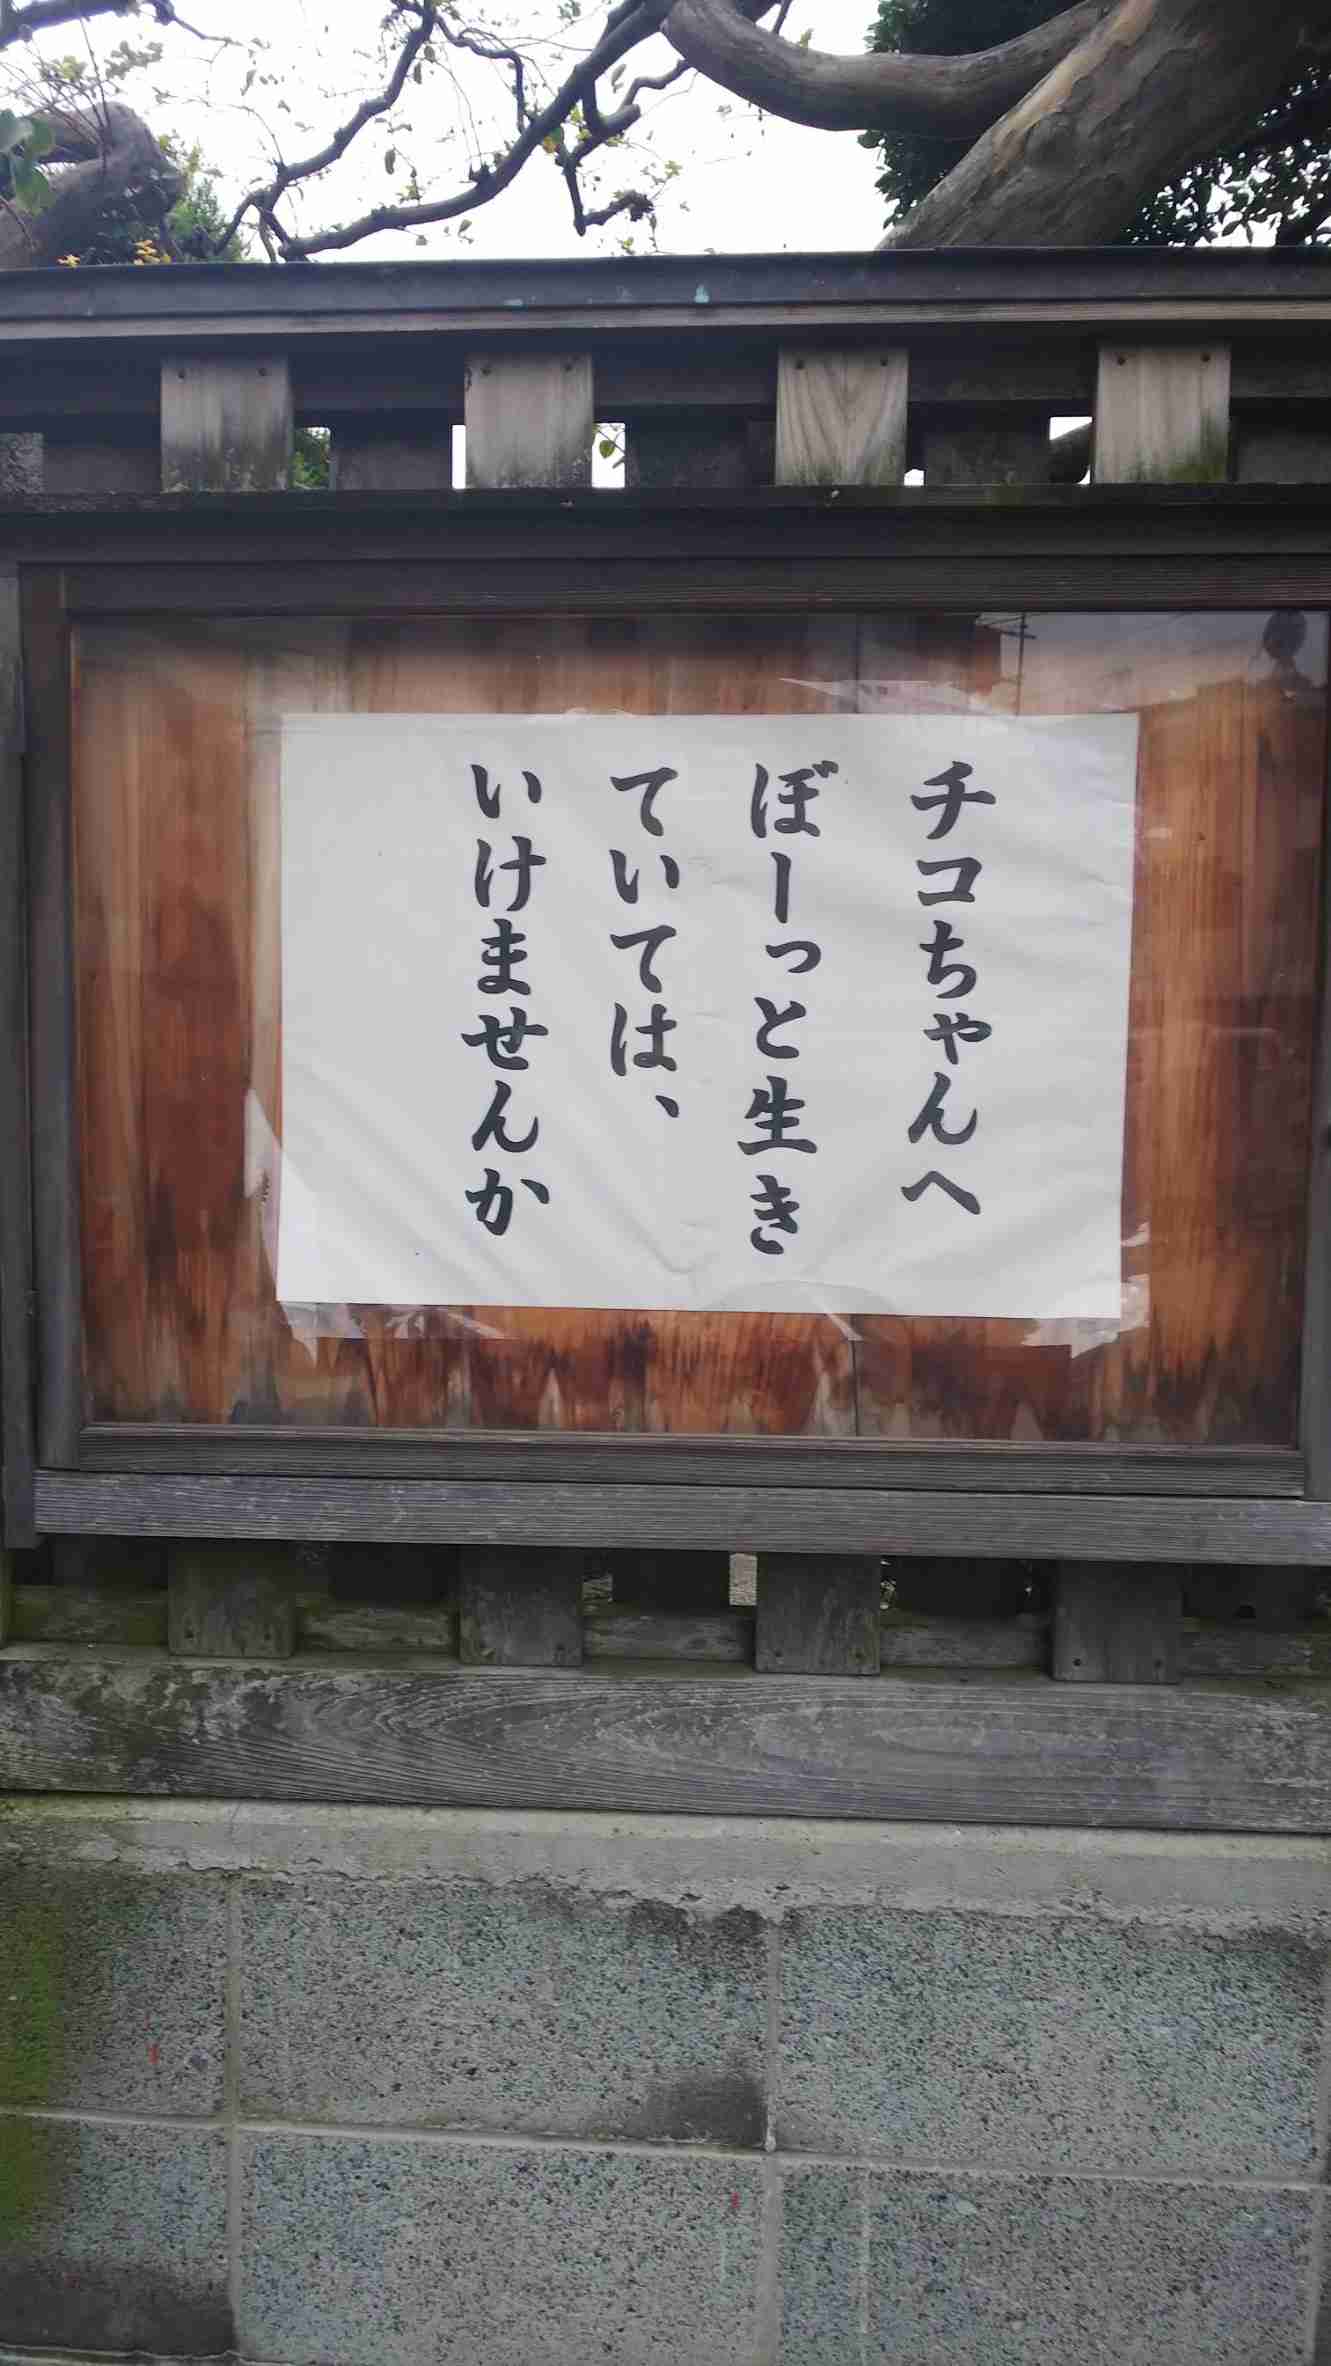 チコちゃんへ
ぼーっと生き
ていては、
いけませんか